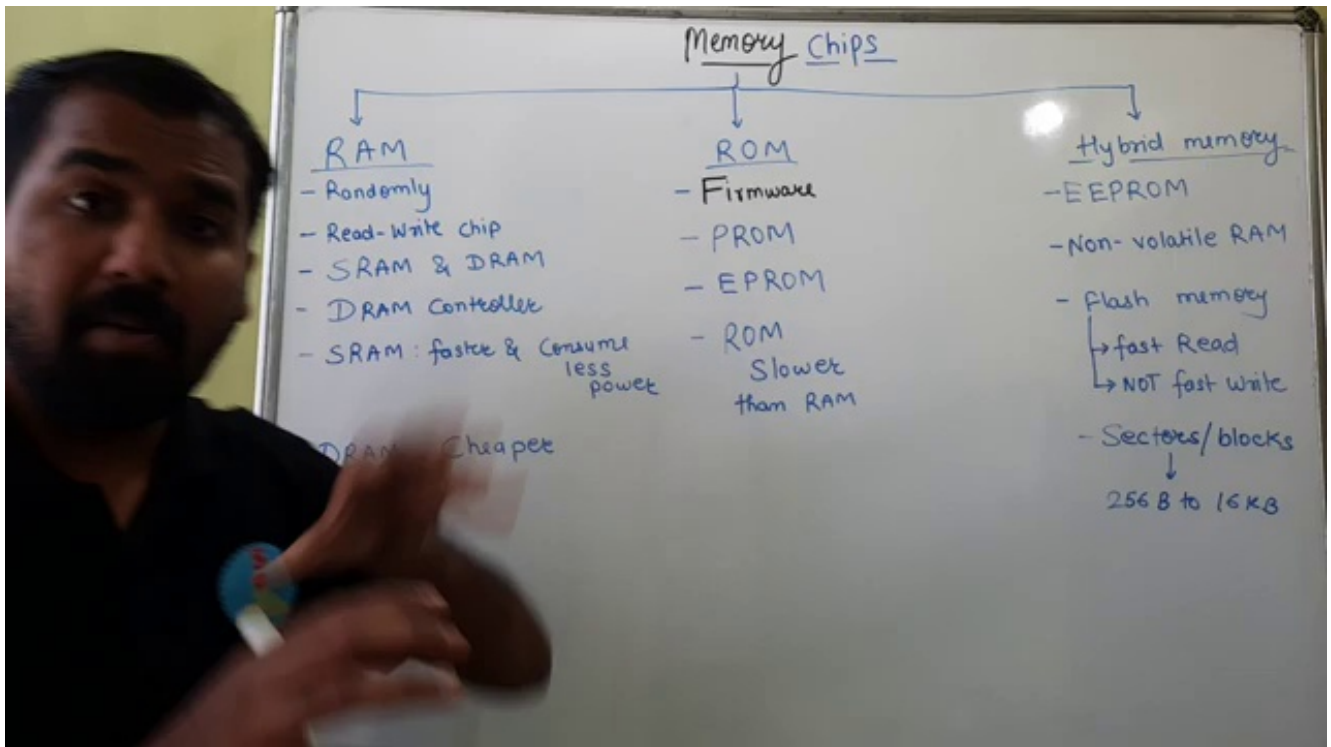 Memory Chips
RAM
- Randomly
- Read-Write chip
- SRAM & DRAM
- DRAM Controller
- SRAM : faster & Consume
less
power
DRAM Cheaper
ROM
- Firmware
- PROM
- EPROM
- ROM
Slower
than RAM
Hybrid memory
- EEPROM
- Non-volatile RAM
- Flash memory
fast Read
NOT fast write
- Sectors/blocks
256 B to 16 KB